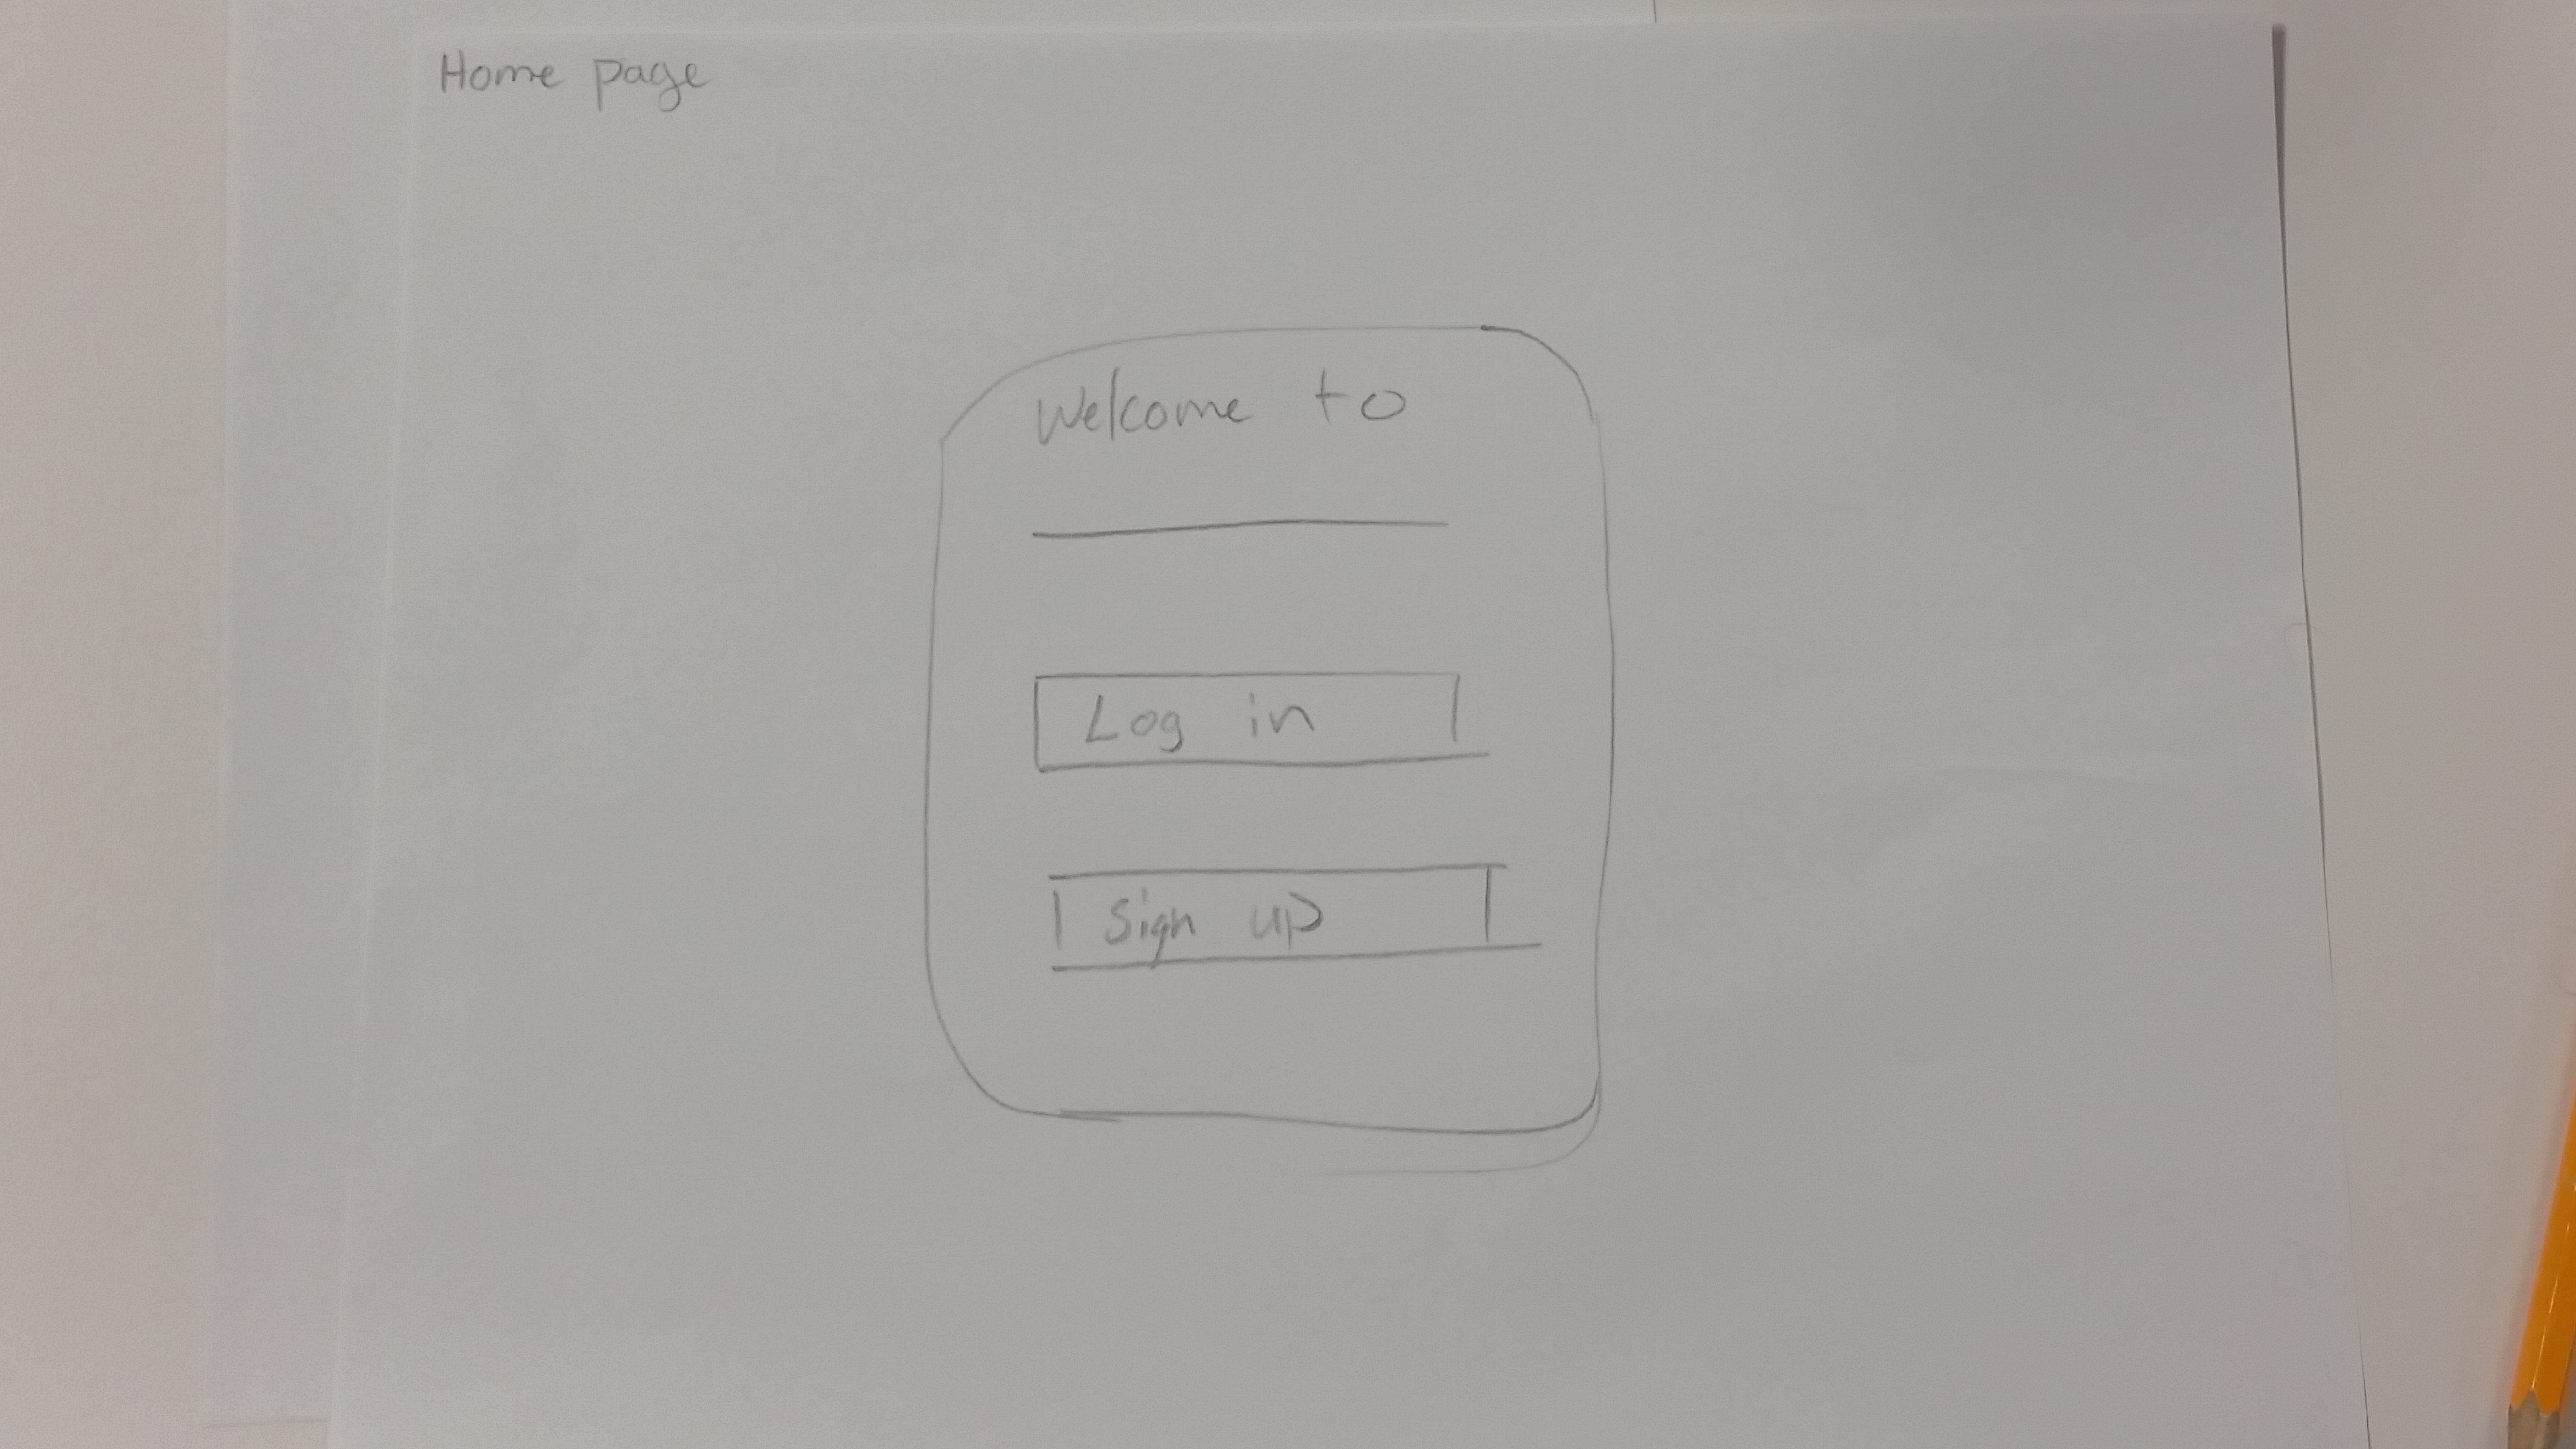 Home page
Welcome to
Log in
Sign up